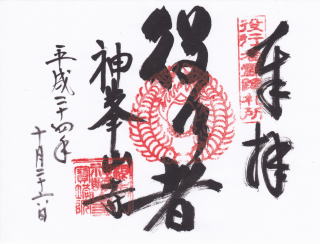 奉拝
役行者霊蹟札所
役行者
神峯山寺
平成二十四年
十月二十六日